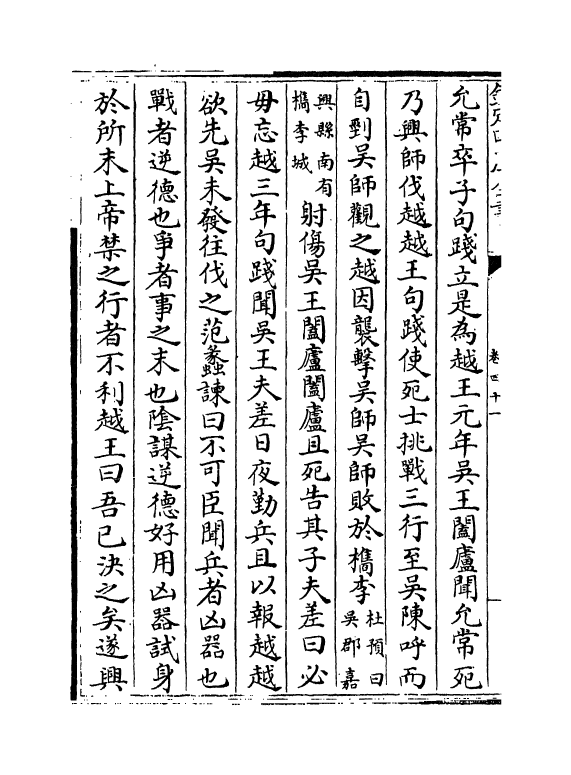 允常卒子句踐立是為越王元年吳王闔廬聞允常死
乃興師伐越越王句踐使死士挑戰三行至吳陳呼而
自剄吳師觀之越因襲擊吳師吳師敗於檇李杜預曰吳郡嘉
興縣南有檇李城射傷吳王闔廬闔廬且死告其子夫差曰必
毋忘越三年句踐聞吳王夫差日夜勤兵且以報越越
欲先吳未發往伐之范蠡諫曰不可臣聞兵者凶器也
戰者逆德也爭者事之末也陰謀逆德好用凶器試身
於所末上帝禁之行者不利越王曰吾已決之矣遂興
卷四十一